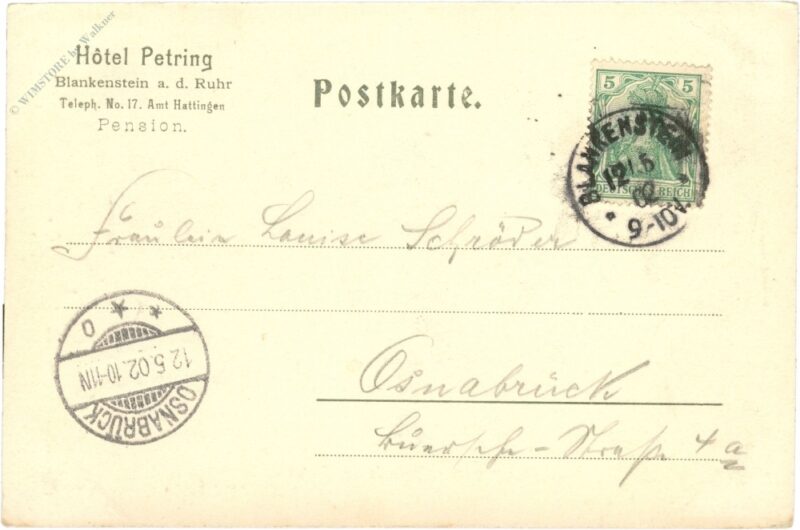 © WIMSTORE by Walkner
Hôtel Petring
Blankenstein a. d. Ruhr
Teleph. No. 17. Amt Hattingen
Pension.
Postkarte.
5 5
DEUTSCHES REICH
BLANKENSTEIN
12.5
02
9-10V.
Fräulein Louise Schröder
12.5.02.10-11N
OSNABRÜCK
Osnabrück
Buersche-Straße 4a